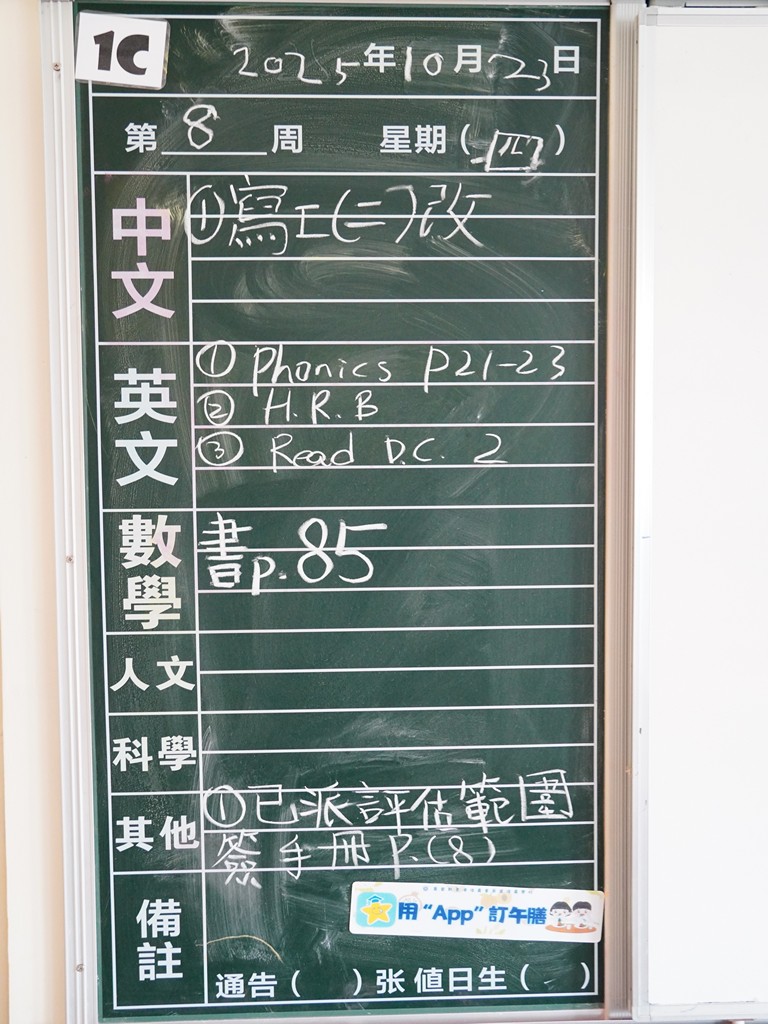 1C
2025年10月23日
第 8 周 星期(四)
中文
①寫工(二)改
英文
① Phonics P21-23
② H.R.B
③ Read D.C. 2
數學
書p.85
人文
科學
其他
①已派評估範圍
簽手冊P.(8)
備註
用“App”訂午膳
通告( )张 值日生( )